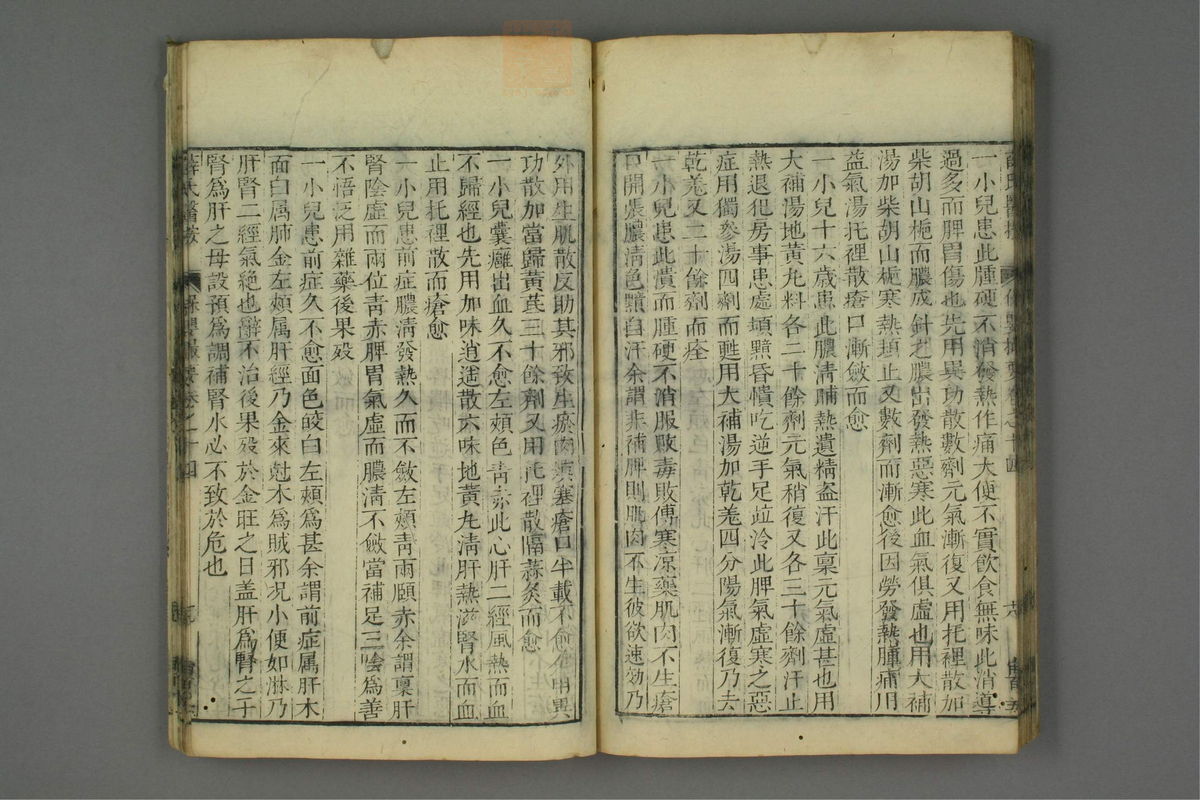 一小兒患此腫硬不消發熱作痛大便不實飲食無味此消導
過多而脾胃傷也先用異功散數劑元氣漸復又用托裡散加
柴胡山梔而膿成針之膿出發熱惡寒此血氣俱虛也用大補
湯加柴胡山梔寒熱頓止又數劑而漸愈後因勞發熱腫痛用
益氣湯托裡散瘡口漸斂而愈
一小兒十六歲患此膿清晡熱遺精盗汗此稟元氣虛甚也用
大補湯地黃丸料各二十餘劑元氣稍復又各三十餘劑汗止
熱退犯房事患處頓黯昏憒吃逆手足並冷此脾氣虛寒之惡
症用獨參湯四劑而甦用大補湯加乾羗四分陽氣漸復乃去
乾羗又二十餘劑而痊
一小兒患此潰而腫硬不消服敗毒敗傅寒凉藥肌肉不生瘡
口開張膿清色黯自汗余謂非補脾則肌肉不生彼欲速效乃
外用生肌散反助其邪致生瘀肉填塞瘡口半載不愈余用異
功散加當歸黃芪三十餘劑又用托裡散隔蒜灸而愈
一小兒囊癰出血久不愈左頰色青赤此心肝二經風熱而血
不歸經也先用加味逍遥散六味地黃丸清肝熱滋腎水而血
止用托裡散而瘡愈
一小兒患前症膿清發熱久而不斂左頰青兩頤赤余謂稟肝
腎陰虛而兩位青赤脾胃氣虛而膿清不斂當補足三陰爲善
不悟泛用雜藥後果歿
一小兒患前症久不愈面色皎白左頰爲甚余謂前症属肝木
面白属肺金左頰属肝經乃金來尅木爲賊邪况小便如淋乃
肝腎二經氣絶也辭不治後果歿於金旺之日盖肝爲腎之子
腎爲肝之母設預爲調補腎水必不致於危也
薛氏醫按